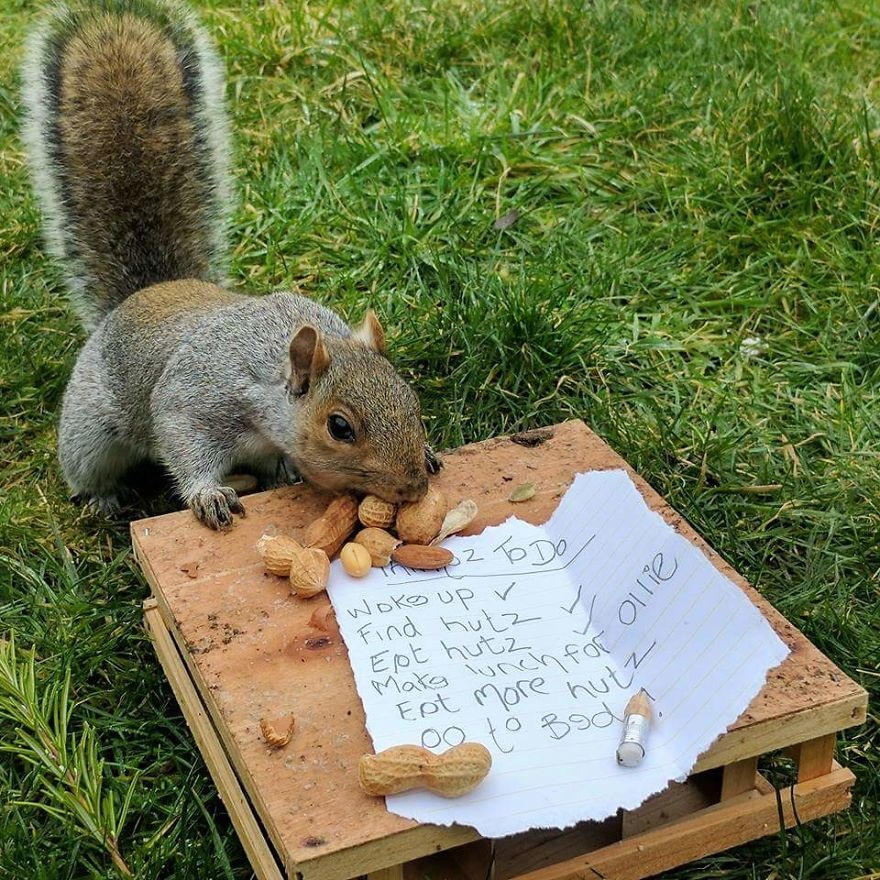 To Do
Wake up ✓
Find nutz ✓
Eat nutz ✓
Make lunch for Ollie
Eat More nutz
Go to Bed